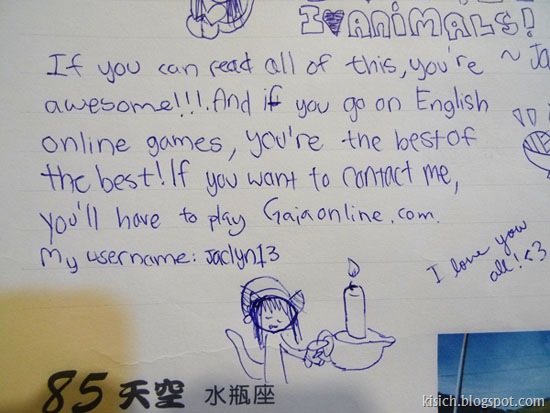 I ♥ ANiMALS!
If you can read all of this, you're ~ Ja
awesome!!!. And if you go on English
online games, you're the best of
the best! If you want to contact me,
you'll have to play Gaiaonline.com.
My username: jaclyn13
I love you
all! <3
85 天空 水瓶座
kisich.blogspot.com